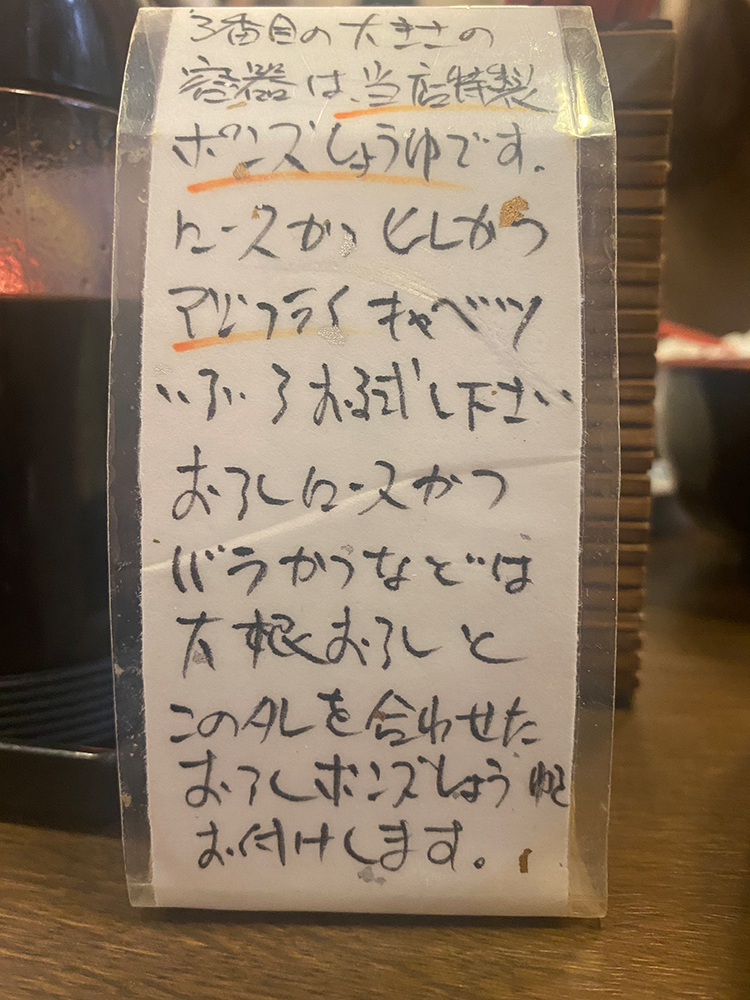 3番目の大きさの
容器は、当店特製
ポンズしょうゆです。
ロースかつ ヒレかつ
アジフライ キャベツ
いろいろお試し下さい
おろしロースかつ
バラかつなどは
大根おろしと
このタレを合わせた
おろしポンズしょうゆを
お付けします。